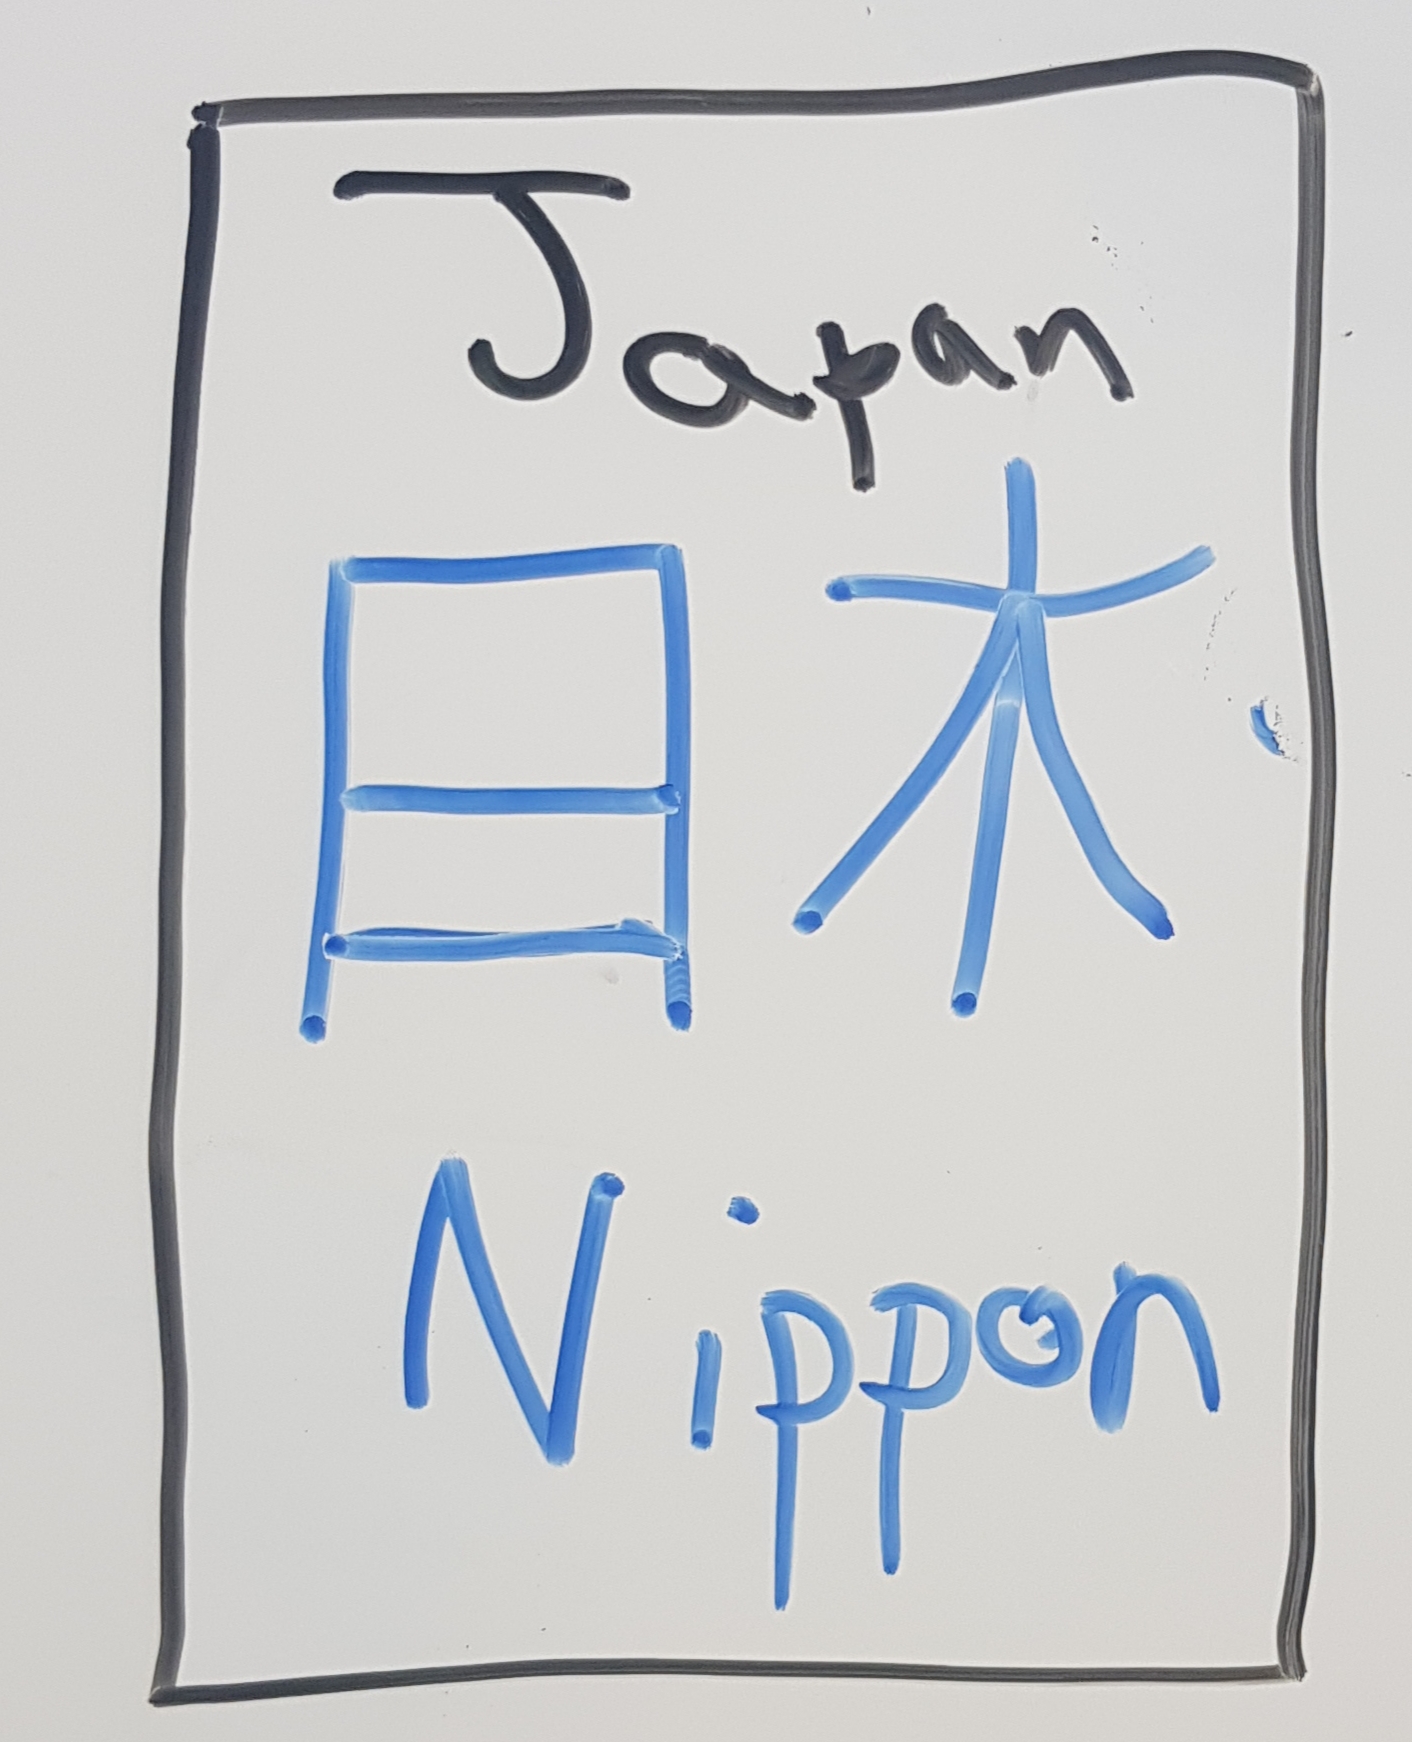 Japan
日木
Nippon